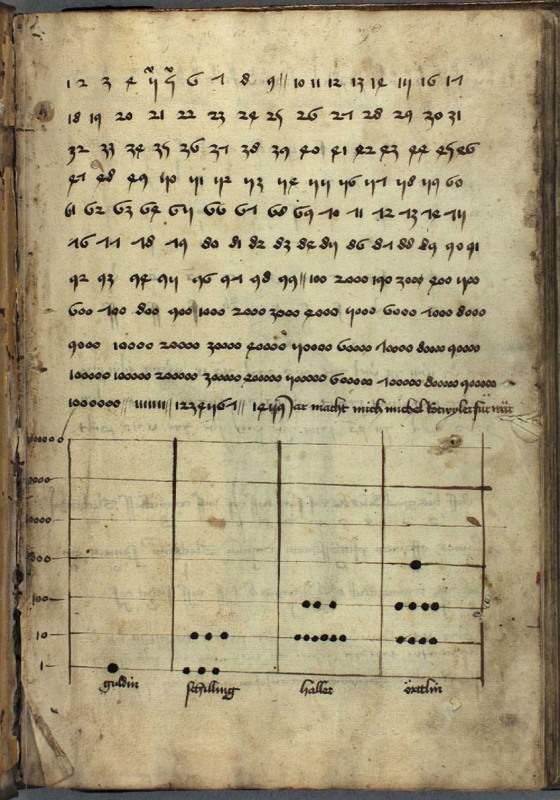 1 2 3 4 5 5 6 7 8 9 // 10 11 12 13 14 15 16 17
18 19 20 21 22 23 24 25 26 27 28 29 30 31
32 33 34 35 36 37 38 39 40 41 42 43 44 45 46
47 48 49 50 51 52 53 54 55 56 57 58 59 60
61 62 63 64 65 66 67 68 69 70 71 72 73 74 75
76 77 78 79 80 81 82 83 84 85 86 87 88 89 90 91
92 93 94 95 96 97 98 99 // 100 2000 190 3000 400 500
600 700 800 900 1000 2000 3000 4000 5000 6000 7000 8000
9000 10000 20000 30000 40000 50000 60000 70000 80000 90000
100000 100000 200000 300000 400000 500000 600000 700000 800000 900000
1000000 // 1234567 // 1459 Jar macht mich michel für war
100
10
1
guldin schilling haller örttlin